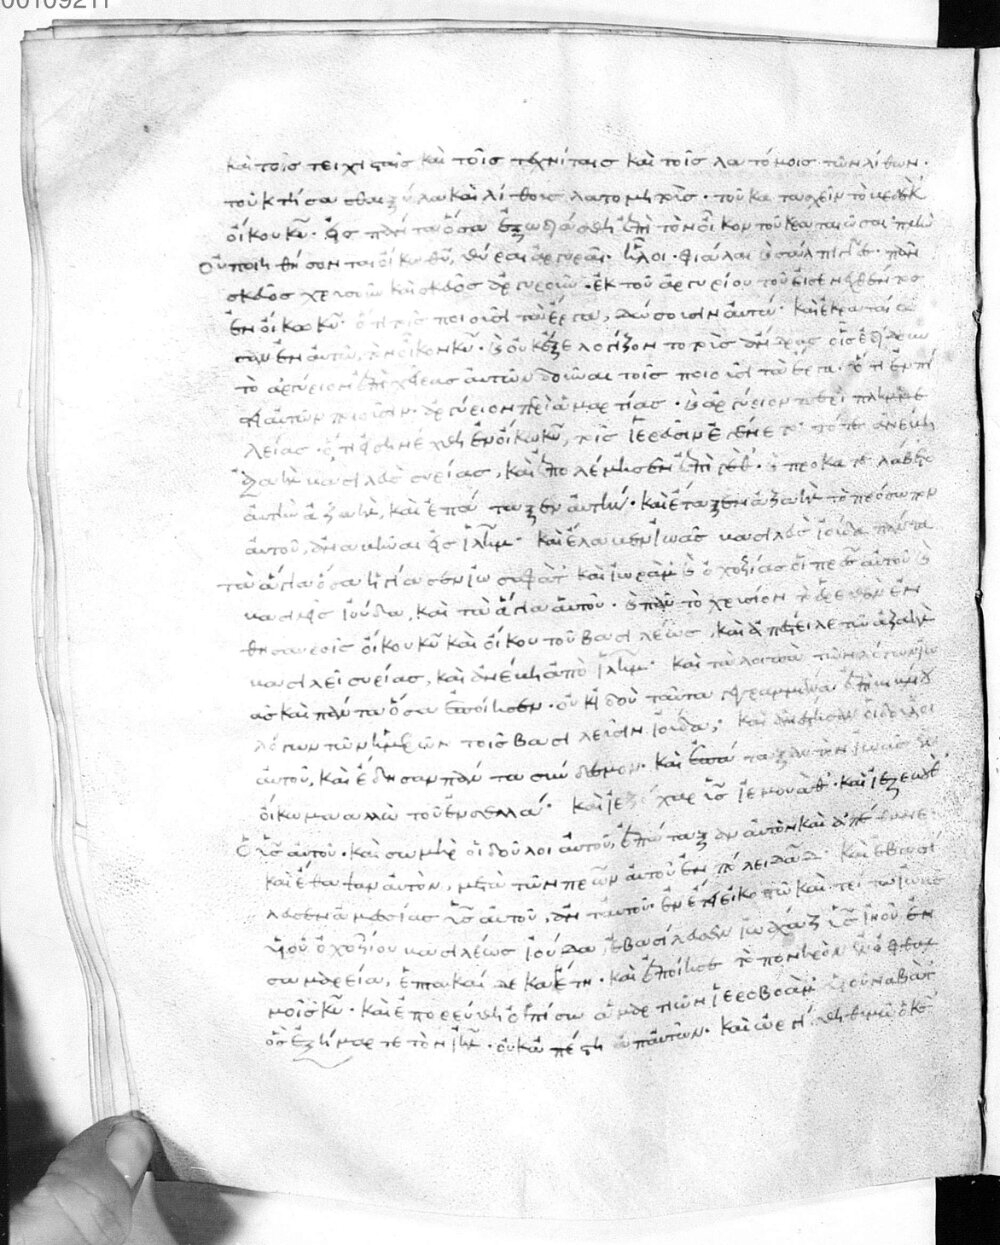 00109211
καὶ τοῖς τειχισταῖς καὶ τοῖς τεχνίταις καὶ τοῖς λατόμοις τῶν λίθων·
τοῦ κτήσασθαι ξύλα καὶ λίθους λατομητοὺς· τοῦ κατασχεῖν τὸ βεδὲκ
οἴκου κυ· εἰς πάντα ὅσα ἐξωδιάσθη ἐπὶ τὸν οἶκον τοῦ κραταιῶσαι· πλὴν
οὐ ποιηθήσονται οἴκω κυ, θύραι ἀργυραῖ· ἧλοι· φιάλαι καὶ σάλπιγγες· πᾶν
σκεῦος χρυσοῦν καὶ σκεῦος ἀργυροῦν· ἐκ τοῦ ἀργυρίου τοῦ εἰσενεχθέντος
ἐν οἴκω κυ· ὅτι τοῖς ποιοῦσι τὰ ἔργα, δώσουσιν αὐτό· καὶ ἐκραταίω
σαν ἐν αὐτῶ τὸν οἶκον κυ· καὶ οὐκ ἐξελογίζοντο τοὺς ἄνδρας οἷς ἐδίδουν
τὸ ἀργύριον ἐπὶ χεῖρας αὐτῶν δοῦναι τοῖς ποιοῦσι τὰ ἔργα· ὅτι ἐν πί
στει αὐτῶν ποιοῦσιν· ἀργύριον περὶ ἁμαρτίας· καὶ ἀργύριον περὶ πλημμε
λείας· ὅτι εἰσηνέχθη ἐν οἴκω κυ, τοῖς ἱερεῦσιν ἐγένετο· τότε ἀνέβη
ἀζαὴλ βασιλεὺς συρίας, καὶ ἐπολέμησεν ἐπὶ γὲθ· καὶ προκατελάβετο
αὐτὴν ἀζαὴλ, καὶ ἐπάταξεν αὐτήν· καὶ ἔταξεν ἀζαὴλ τὸ πρόσωπον
αὐτοῦ, ἀναβῆναι εἰς ἱλημ· καὶ ἔλαβεν ἰωὰς βασιλεὺς ἰούδα πάντα
τὰ ἅγια ὅσα ἡγίασεν ἰωσαφὰτ καὶ ἰωρὰμ καὶ ὀχοζίας οἱ πρες αὐτοῦ καὶ
βασιλεῖς ἰούδα, καὶ τὰ ἅγια αὐτοῦ· καὶ πᾶν τὸ χρυσίον τὸ εὑρεθὲν ἐν
θησαυροῖς οἴκου κυ καὶ οἴκου τοῦ βασιλέως, καὶ ἀπέστειλε τῶ ἀζαὴλ
βασιλεῖ συρίας, καὶ ἀνέβη ἀπὸ ἱλημ· καὶ τὰ λοιπὰ τῶν λόγων ἰω
ὰς καὶ πάντα ὅσα ἐποίησεν· οὐκ ἰδοὺ ταῦτα γεγραμμένα ἐπὶ βιβλίου
λόγων τῶν ἡμερῶν τοῖς βασιλεῦσιν ἰούδα; καὶ ἀνέστησαν οἱ δοῦλοι
αὐτοῦ, καὶ ἔδησαν πάντα σύνδεσμον· καὶ ἐπάταξαν τὸν ἰωὰς ἐν
οἴκω μααλλὼ τοῦ ἐν σελλά· καὶ ἰεζιχὰρ υς ἰεμουάθ· καὶ ἰεζεβοὺθ
ὁ υς αὐτοῦ· καὶ σωμὴρ οἱ δοῦλοι αὐτοῦ, ἐπάταξαν αὐτὸν καὶ ἀπέθανε·
καὶ ἔθαψαν αὐτὸν, μετὰ τῶν πρων αὐτοῦ ἐν πόλει δαδ· καὶ ἐβασί
λευσεν ἀμεσίας υς αὐτοῦ, ἀντ' αὐτοῦ· ἐν ἔτει εἰκοστῶ καὶ τρίτω ἰωὰς
υἱοῦ ὀχοζίου βασιλέως ἰούδα, ἐβασίλευσεν ἰωάχαζ υς ἰηοὺ ἐν
σαμαρεία, ἑπτακαίδεκα ἔτη· καὶ ἐποίησε τὸ πονηρὸν ἐν ὀφθαλ
μοῖς κυ· καὶ ἐπορεύθη ὀπίσω ἁμαρτιῶν ἱεροβοὰμ υἱοῦ ναβὰτ
ὃς ἐξήμαρτε τὸν ιηλ· οὐκ ἀπέστη ἀπ' αὐτῶν· καὶ ὠργίσθη θυμῶ ὁ κς